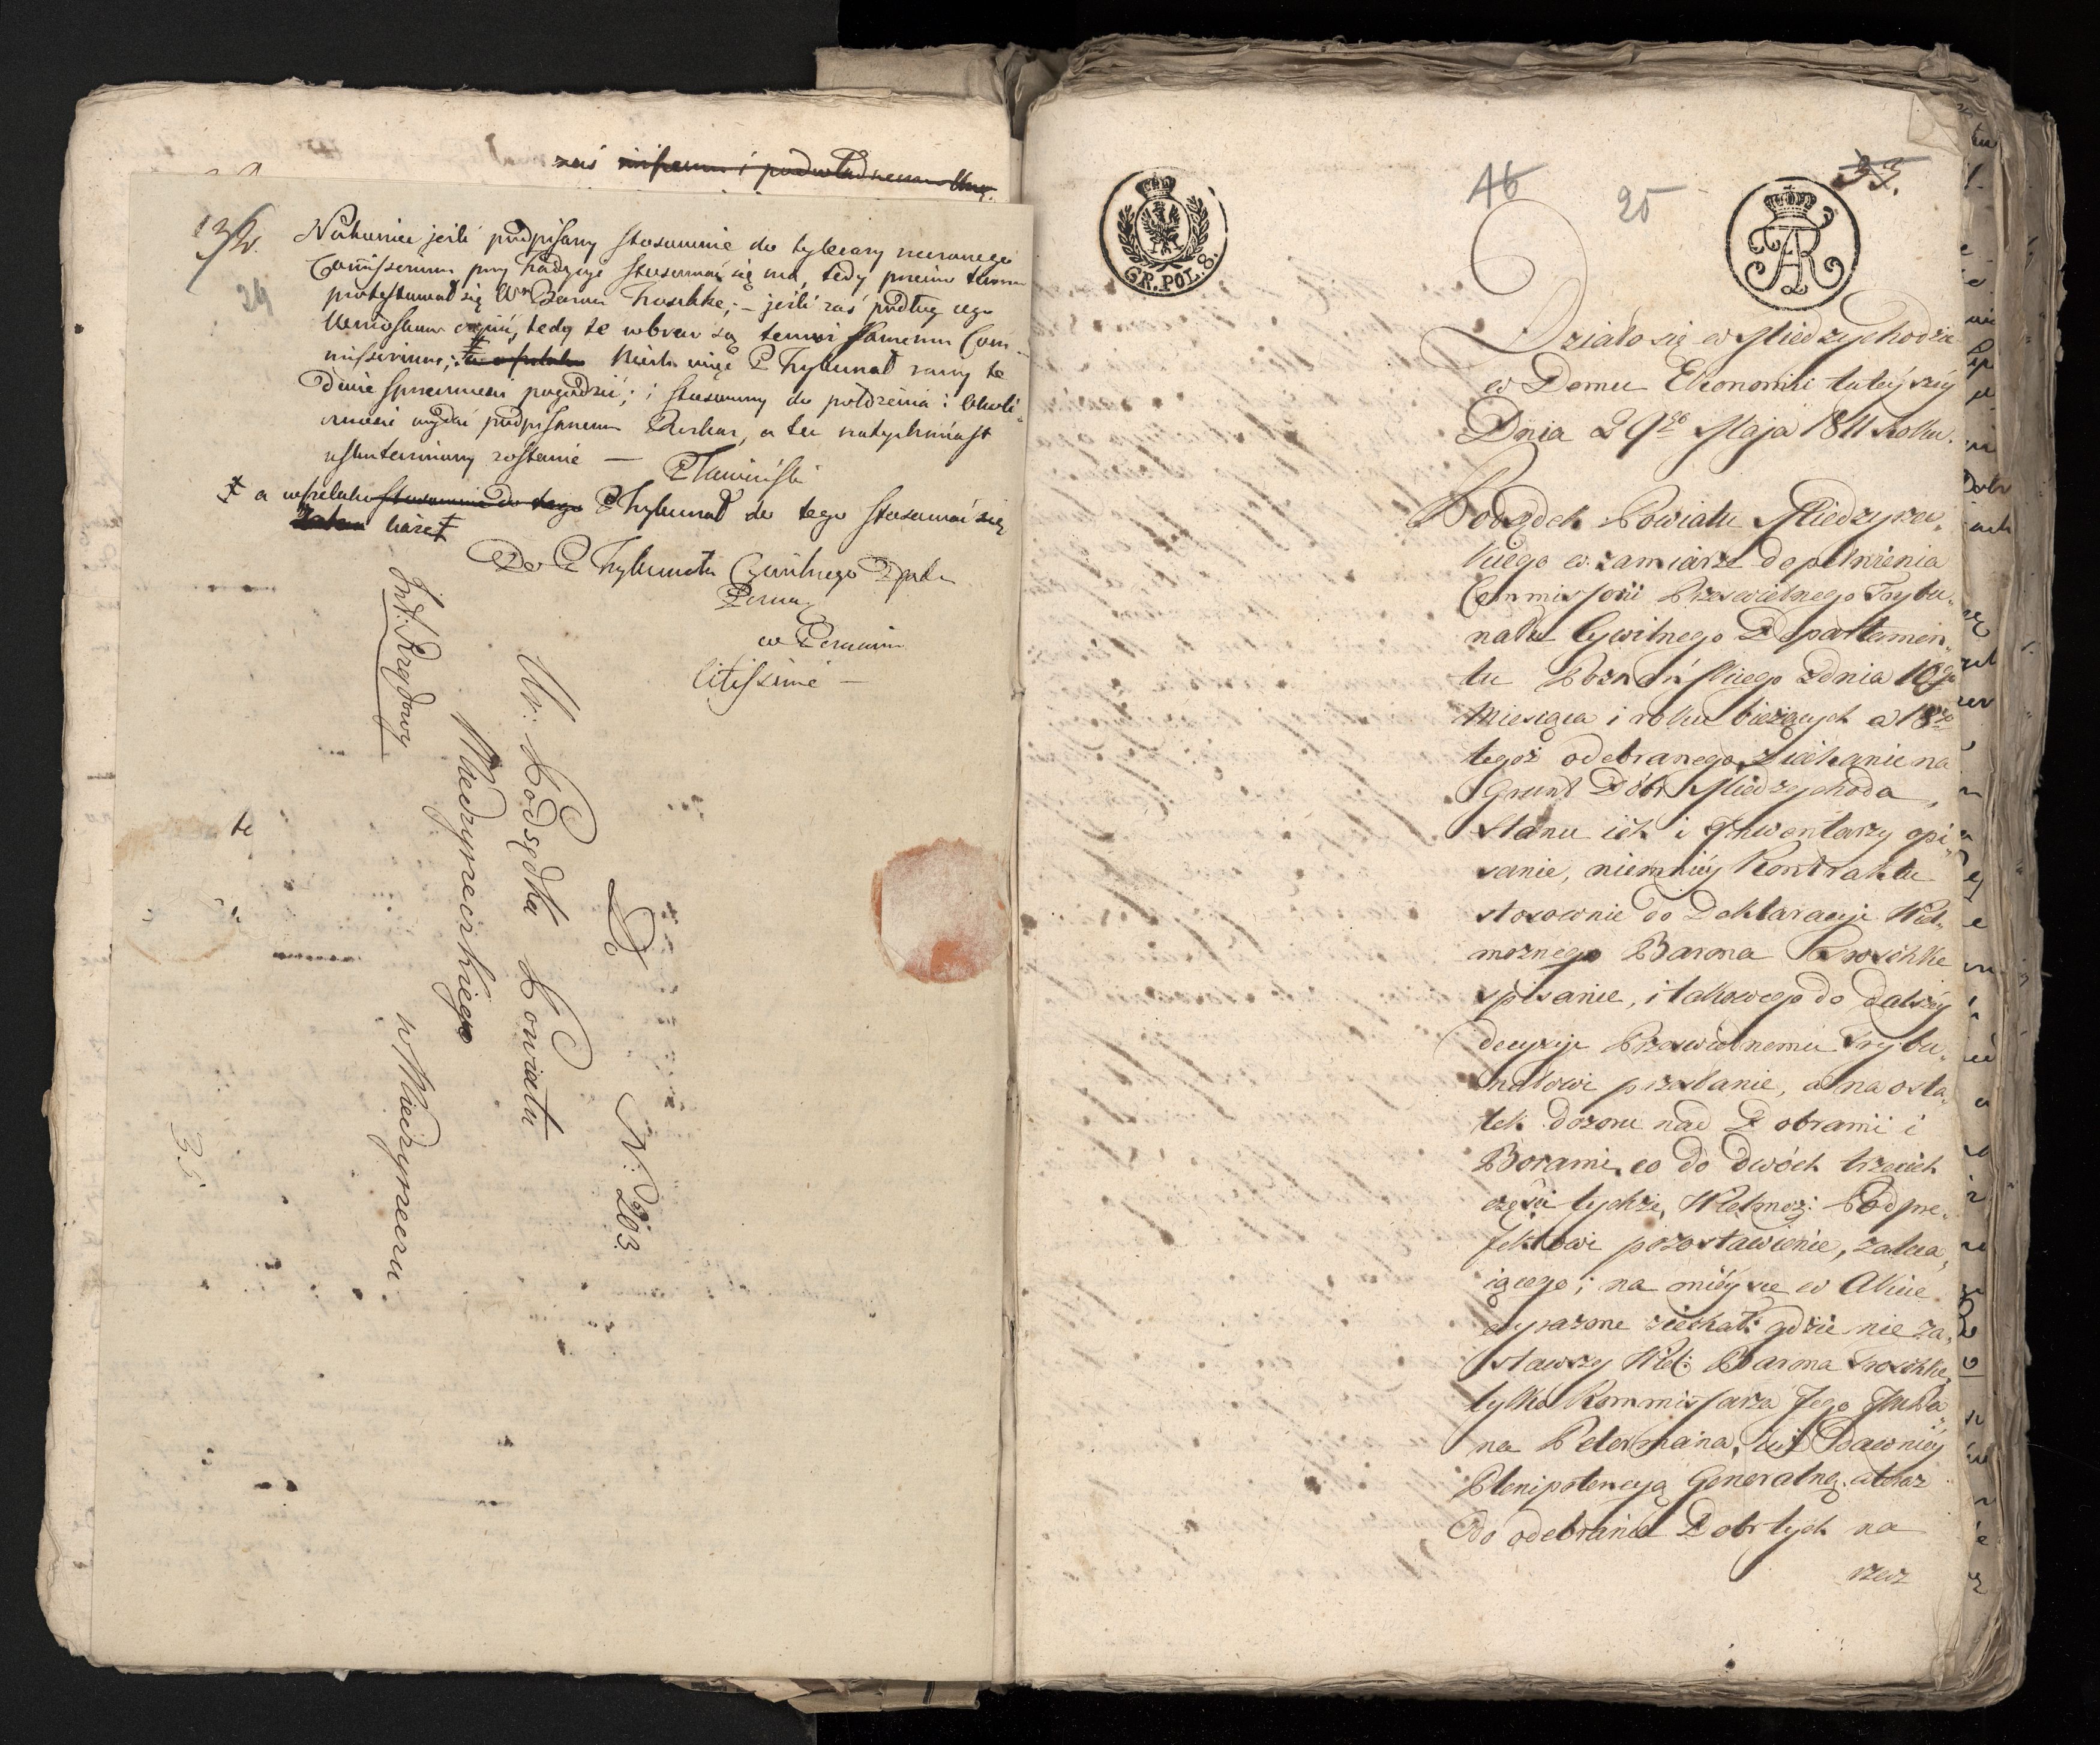 zaś
13/2.
24
Nakoniec jeśli podpisany stosownie do
Commissorium przy tradycyi stosować się ma, tedy przeciw temu
protestował się Wny Baron Troschke; – jeśli zaś podług iego
wniosków czynić, tedy te wbrew są temu samemu Com-
missorium; Niech więc P Trybunał raczy te
dwie sprzeczności pogodzić; i stosowny do położenia i okoli-
czności wydać podpisanemu Rozkaz, a ten natychmiast
uskuteczniony zostanie —
a wszelako stosownie do tego P Trybunał do tego stosować się
każe
Do P Trybunału Cywilnego Dpttu
Pozna:
w Poznaniu
Citissime —
Int: Rządowy
Do N: 203.
Ur: Podsędka Powiatu
Miedzyrzeckiego
w Miedzyrzeczu
te
35.
GR. POL. 8.
46
25
33.
Działo się w Miedzychodzie
w Domu Ekonomii tuteyszéy
Dnia 29go Maja 1811 Roku.
Podsędek Powiatu Miedzyrze„
kiego w zamiarze dopełnienia
Commissorii Prześwietnego Trybu„
nału Cywilnego Departamen„
tu Poznańskiego z dnia 10go
Miesiąca i roku bieżących a 18go
tegoż odebranego, ziechanie na
Grunt Dóbr Miedzychoda,
Stanu ich i Inwentarzy opi„
sanie, niemniéy Kontraktu
stosownie do Deklaracyi Wiel„
możnego Barona Troschke
spisanie, i takowego do dalszéy
decyzyi Prześwietnemu Trybu„
nałowi przesłanie, a na osta„
tek dozoru nad Dobrami i
Borami, co do dwóch trzecich
części tychże, Wielmoż: Podpre„
fektowi pozostawienie, zaleca„
iącego; na mieysce w Akcie
wyrażone ziechał: gdzie nie za„
stawszy Wiel: Barona Troschke,
tylko Kommissarza Jego Imć Pa„
na Petermana, już dawniéy
Plenipotencyą Generalną, a teraz
do odebrania Dobr tych na
rzecz